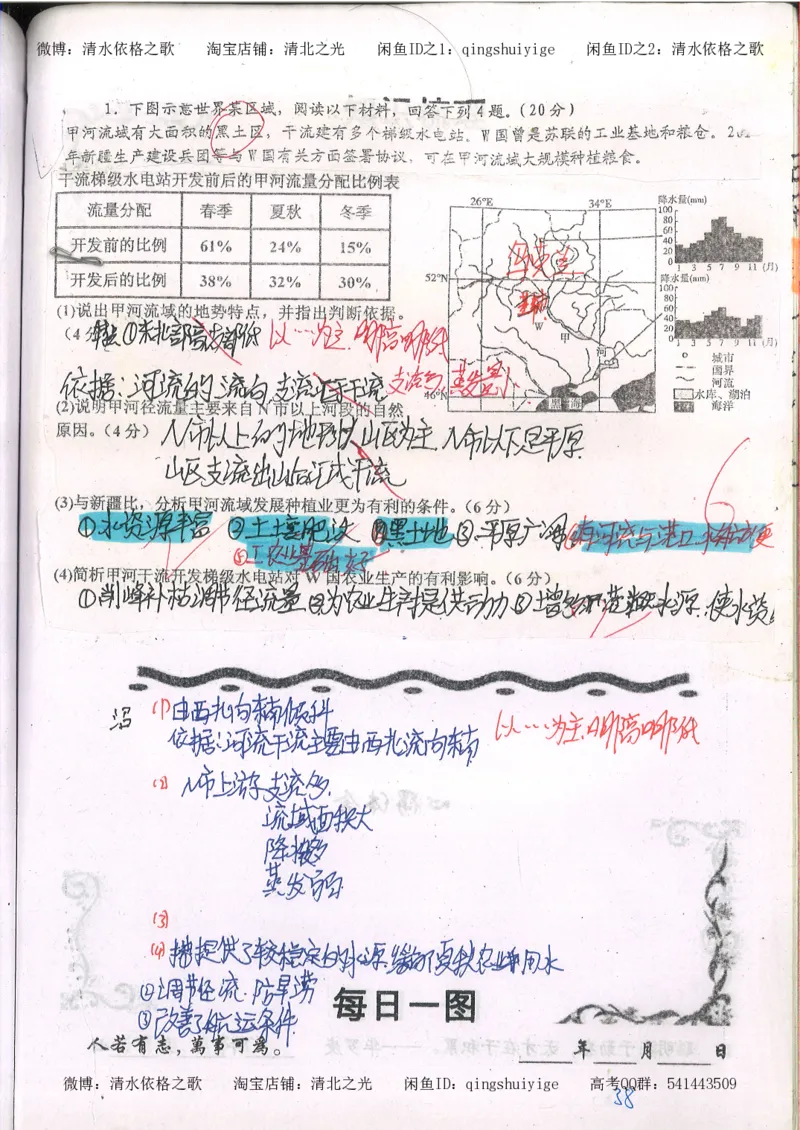 微博：清水依格之歌 淘宝店铺：清北之光 闲鱼ID之1：qingshuiyige 闲鱼ID之2：清水依格之歌
1．下图示意世界某区域，阅读以下材料，回答下列4题。（20分）
甲河流域有大面积的黑土区，干流建有多个梯级水电站。W国曾是苏联的工业基地和粮仓。
年新疆生产建设兵团等与W国有关方面签署协议，可在甲河流域大规模种植粮食。
干流梯级水电站开发前后的甲河流量分配比例表
流量分配 春季 夏秋 冬季
开发前的比例 61% 24% 15%
开发后的比例 38% 32% 30%
26°E 34°E
52°N
46°N
W
甲
河
黑海
降水量(mm)
100
80
60
40
20
0
1 3 5 7 9 11 (月)
降水量(mm)
100
80
60
40
20
0
1 3 5 7 9 11 (月)
城市
国界
河流
水库、湖泊
海洋
(1)说出甲河流域的地势特点，并指出判断依据。
（4 特点①东北部高 以……为主，哪高哪低
依据：河流的流向，支流 干流 支流多，蒸发量小
(2)说明甲河径流量主要来自N市以上河段的自然
原因。（4分） N市以上的地形以山区为主，N市以下是平原
山区支流出山后汇成干流
(3)与新疆比，分析甲河流域发展种植业更为有利的条件。（6分）
①水资源丰富 ②土壤肥沃 黑土地 ③平原广阔 ④有河流与港口，水
⑤工农业基础好
(4)简析甲河干流开发梯级水电站对W国农业生产的有利影响。（6分）
①削峰补枯调节径流量 ②为农业生产提供动力 ③增 水源，使水资
(1) 由西北向东南倾斜 以……为主，哪高哪低
依据：河流干流主要由西北流向东南
(2) N市上游支流多
流域面积大
降水多
蒸发弱
(3)
(4) 提供了较稳定的水源，缓解了夏秋农业用水
②调节径流，防旱涝
③改善了航运条件
每日一图
人若有志，萬事可為。 年 月 日
微博：清水依格之歌 淘宝店铺：清北之光 闲鱼ID：qingshuiyige 高考QQ群：541443509
38